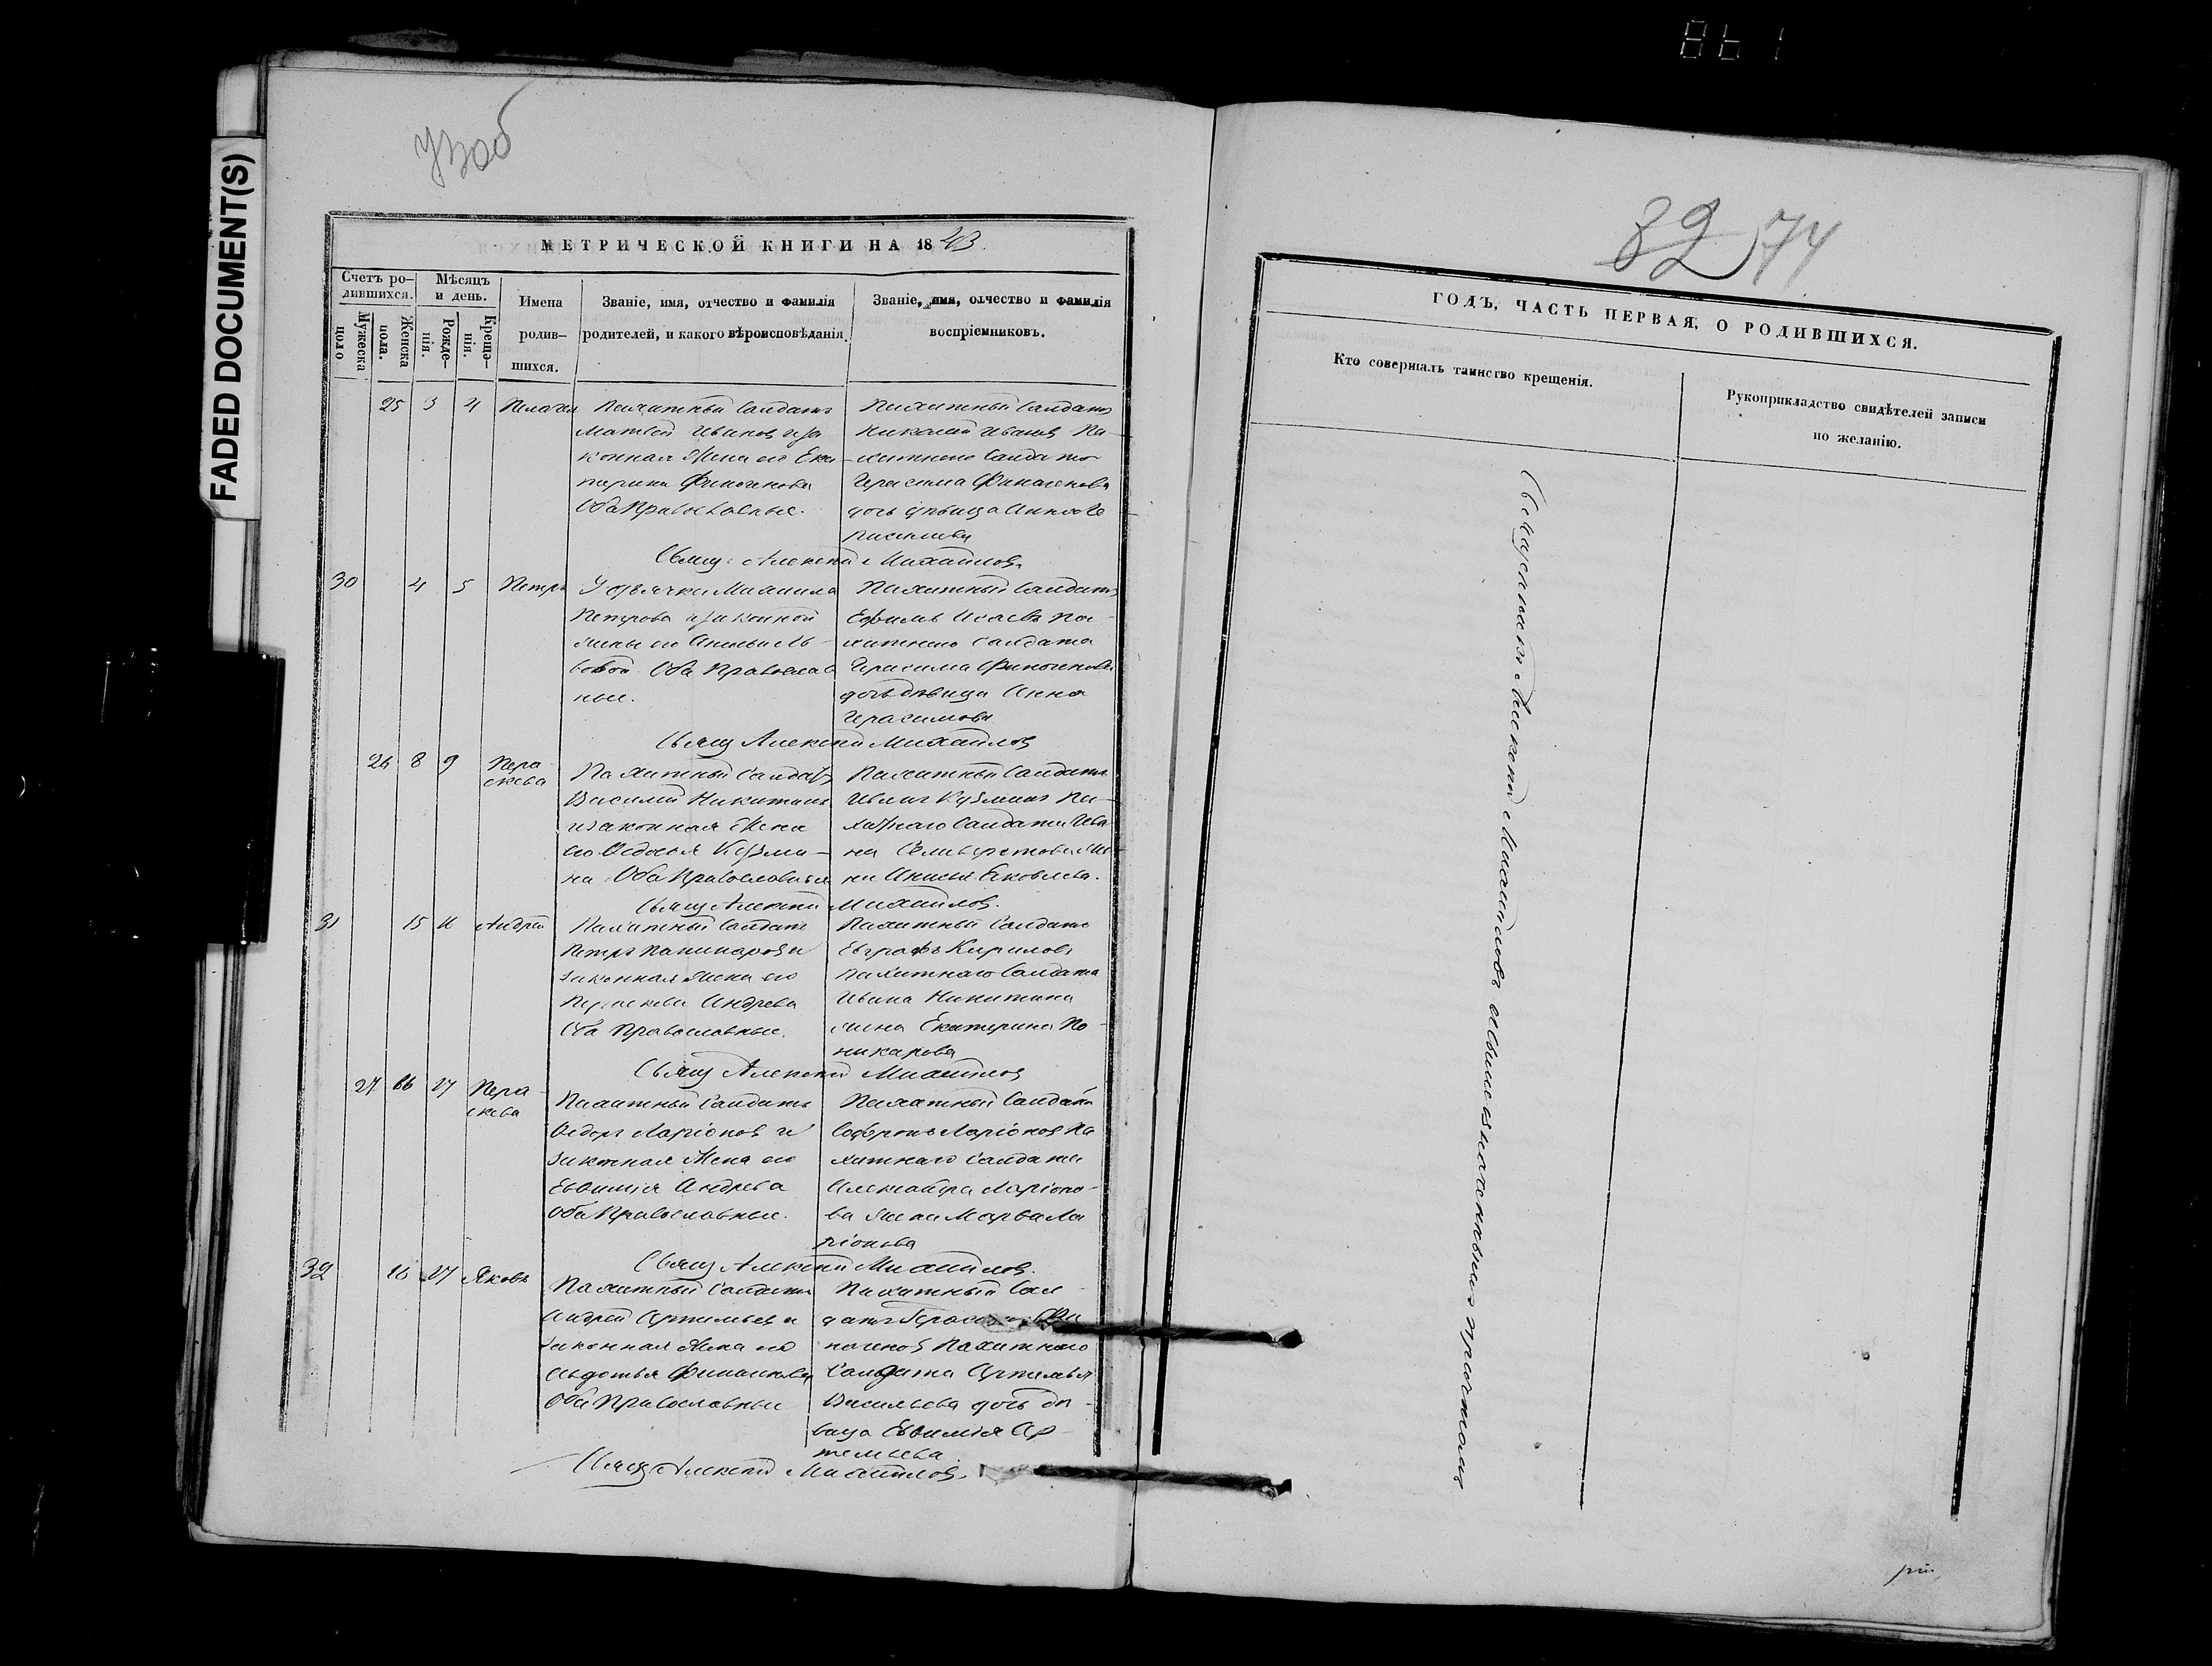 861
FADED DOCUMENT(S)
МЕТРИЧЕСКОЙ КНИГИ НА 1843.
Счетъ ро-
дившихся.
Мѣсяцъ
и день.
Мужеска
пола
Женска
пола.
Рожде-
нія.
Креще-
нія.
Имена
родив-
шихся.
Званіе, имя, отчество и фамилія
родителей, и какого вѣроисповѣданія.
Званіе, имя, отчество и фамилія
воспріемниковъ.
25 3 4 Пелагея
Пахатный Солдатъ
Матвей Ивановъ и за
конная Жена его Ека-
терина Финогенова
Оба Православные.
Пахатный Солдатъ
Николай Ивановъ Па-
хатнаго Солдата
Герасима Финогенова
дочь дѣвица Анна Ге
расимова
Свящ: Алексей Михайловъ
30 4 5 Петръ
Михаила
Петрова и законной
жены его
Оба Православ
ные.
Пахатный Солдатъ
Ефимъ Исаевъ Па-
хатнаго Солдата
Герасима Финогенова
дочь дѣвица Анна
Герасимова
Свящ Алексей Михайловъ
26 8 9 Пера
скева
Пахатный Солдатъ
Василий Никитинъ
и законная Жена
его Федосья Кузми-
на Оба Православныя
Пахатный Солдатъ
Иванъ Кузминъ Па-
хатнаго Солдата Ива
на Селиверстова Же
на Анисья Яковлева.
Свящ Алексей Михайловъ.
31 15 16 Андрей
Пахатный Солдатъ
Петръ Поникаровъ и
законная жена его
Перасковья Андрева
Оба Православные.
Пахатный Солдатъ
Евграфъ Кириловъ
Пахатнаго Солдата
Ивана Никитина
жена Екатерина По-
никарова
Свящ Алексей Михайловъ
27 27 Пера-
скева
Пахатный Солдатъ
Федоръ Ларіоновъ и
законная Жена его
Евфимія Андрева
Оба Православные.
Пахатный Солдатъ
Софронъ Ларіоновъ Па
хатнаго Солдата
Александра Ларіоно-
ва жена Марфа Ла
ріонова
Свящ Алексей Михайловъ.
32 27 Яковъ
Пахатный Солдатъ
Андрей Артемьевъ и
законная Жена его
Авдотья Финогенова
Оба Православные
Пахатный Сол
датъ Герасимъ Фи
ногеновъ Пахатнаго
Солдата Артемья
Васильева дочь дѣ-
вица Евфимія Ар
темьева
Свящ Алексей Михайловъ.
32 74
ГОДЪ, ЧАСТЬ ПЕРВАЯ, О РОДИВШИХСЯ.
Кто совершалъ таинство крещенія.
Рукоприкладство свидѣтелей записи
по желанію.
Священникъ Алексей Михайловъ